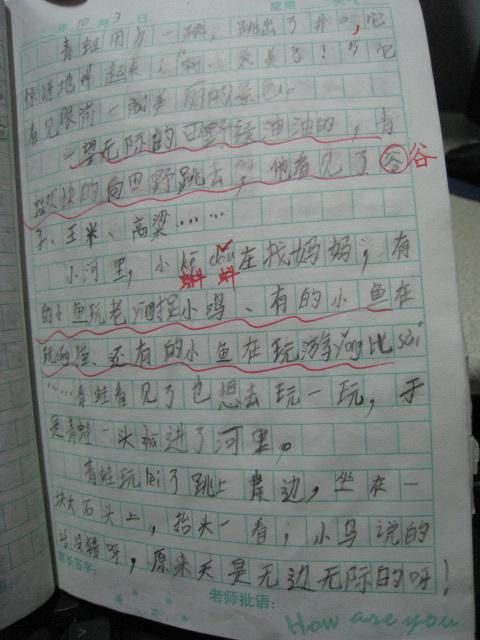 年 10 月 3 日 星期 天气
青蛙用力一跳，跳出了井口，它
惊讶地叫起来：“啊！太美了！”它
看见眼前一片美丽的景色。
一望无际的田野绿油油的，青
蛙欢快的向田野跳去，他看见了谷 谷
子、玉米、高梁……
小河里，小 dǒu 在找妈妈，有 蝌蚪
的小鱼玩老 yīng 捉小鸡、有的小鱼在
玩 还有的小鱼在玩游 yǒng 比 sài
……青蛙看见了也想去玩一玩，于
是青蛙一头 进了河里。
青蛙玩 lèi 了跳上岸边，坐在一
块大石头上，抬头一看，小鸟说的
话没错呀，原来天是无边无际的呀！
家长签字： 老师批语：
How are you